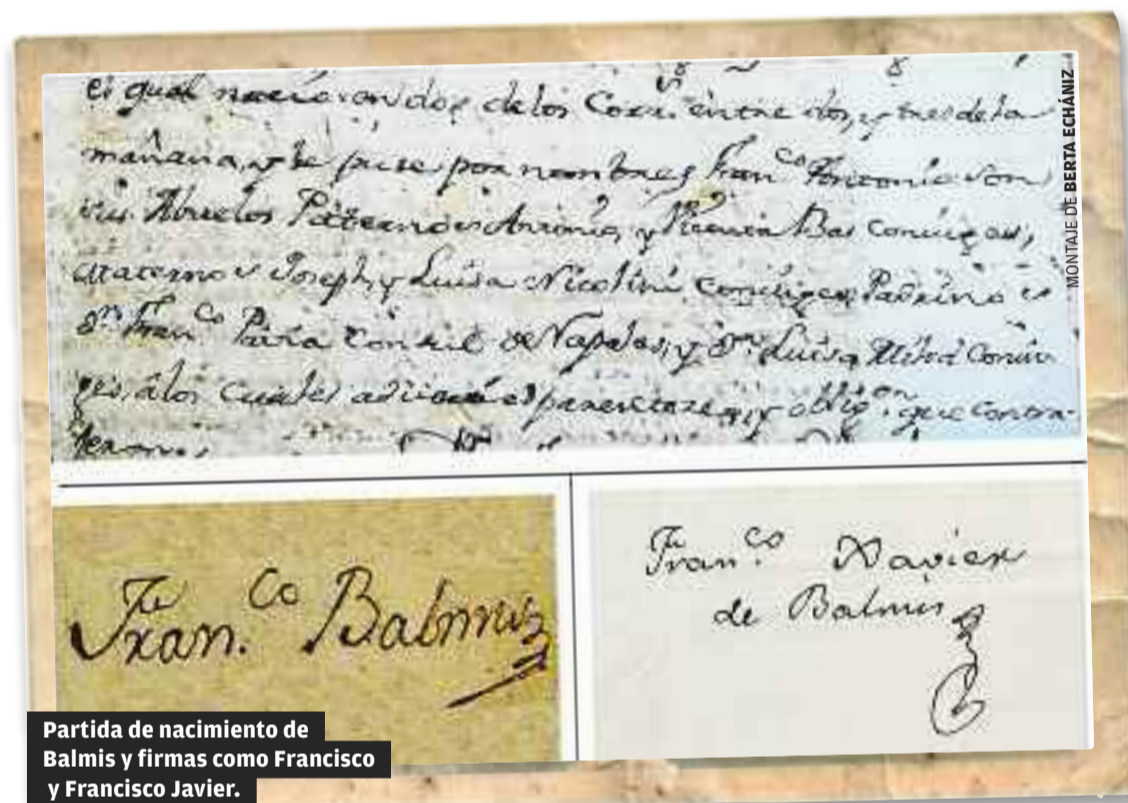 el qual nacio en dos de los Corr.ˢ entre dos, y tres de la
mañana, y le puse por nombres Fran.ᶜᵒ Antonio son
sus Abuelos Paternos Antonio, y Bas Conyuges,
Maternos Joseph, y Luisa Nicolini Conyuges Padrinos
Dⁿ Franᶜᵒ Consul de Napoles, y Dᵃ Luisa Conyu
ges, a los cuales el parentezco, y obligᵒⁿ. que contra-
jeron.
Franᶜᵒ. Balmis
Franᶜᵒ. Xavier
de Balmis
Partida de nacimiento de
Balmis y firmas como Francisco
y Francisco Javier.
MONTAJE DE BERTA ECHÁNIZ